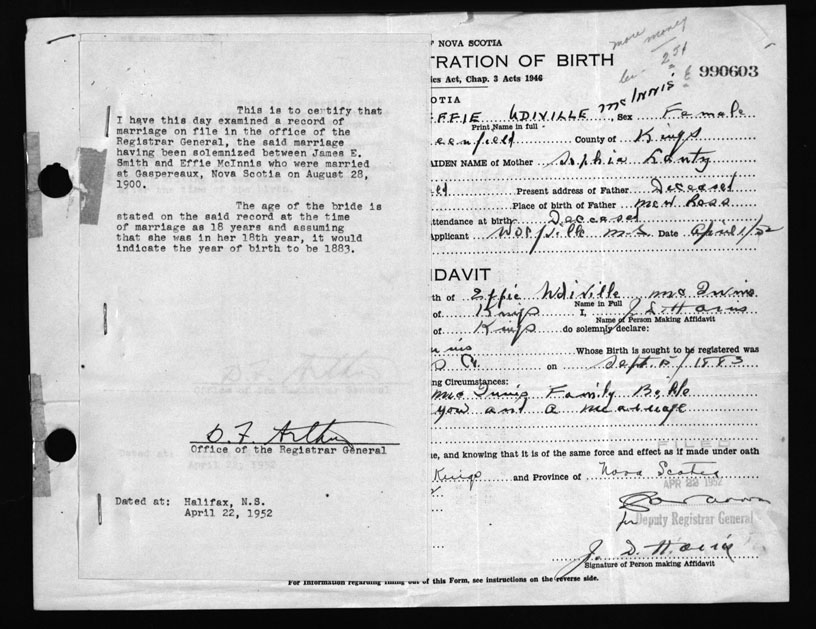 This is to certify that
I have this day examined a record of
marriage on file in the office of the
Registrar General, the said marriage
having been solemnized between James E.
Smith and Effie McInnis who were married
at Gaspereaux, Nova Scotia on August 28,
1900.
The age of the bride is
stated on the said record at the time
of marriage as 18 years and assuming
that she was in her 18th year, it would
indicate the year of birth to be 1883.
Office of the Registrar General
Dated at: Halifax, N.S.
April 22, 1952
more money
NOVA SCOTIA
TRATION OF BIRTH
ics Act, Chap. 3 Acts 1946
990603
COTIA
EFFIE UDIVILLE McINNIS, Sex Female
Print Name in full
eenfield County of Kings
AIDEN NAME of Mother Sophia
ed Present address of Father Deceased
Place of birth of Father
ttendance at birth Deceased
Applicant Wolfville N.S. Date April 1/52
IDAVIT
rth of Effie Udiville McInnis
Name in Full
of Kings I,
Name of Person Making Affidavit
of Kings do solemnly declare:
nnis Whose Birth is sought to be registered was
on Sept 5/1883
ng Circumstances:
McInnis Family Bible
FILED
e, and knowing that it is of the same force and effect as if made under oath
Kings and Province of Nova Scotia
APR 22 1952
for Deputy Registrar General
Signature of Person making Affidavit
For information regarding filling out of this Form, see instructions on the reverse side.